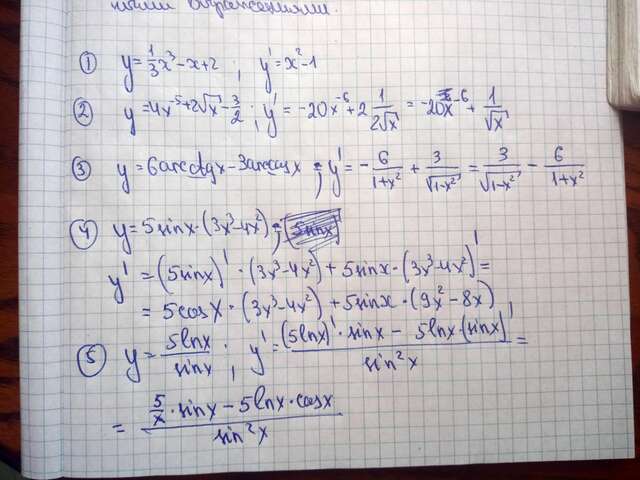 ① y = 1/3 x³ - x + 2 ; y' = x² - 1
② y = 4x⁻⁵ + 2√x - 3/2 ; y' = -20x⁻⁶ + 2 1/(2√x) = -20x⁻⁶ + 1/√x
③ y = 6arcctgx - 3arccosx ; y' = - 6/(1+x²) + 3/√(1-x²) = 3/√(1-x²) - 6/(1+x²)
④ y = 5sinx · (3x³ - 4x²) =
y' = (5sinx)' · (3x³ - 4x²) + 5sinx · (3x³ - 4x²)' =
= 5cosx · (3x³ - 4x²) + 5sinx · (9x² - 8x)
⑤ y = 5lnx/sinx ; y' = ((5lnx)' · sinx - 5lnx · (sinx)')/sin²x =
= (5/x · sinx - 5lnx · cosx)/sin²x